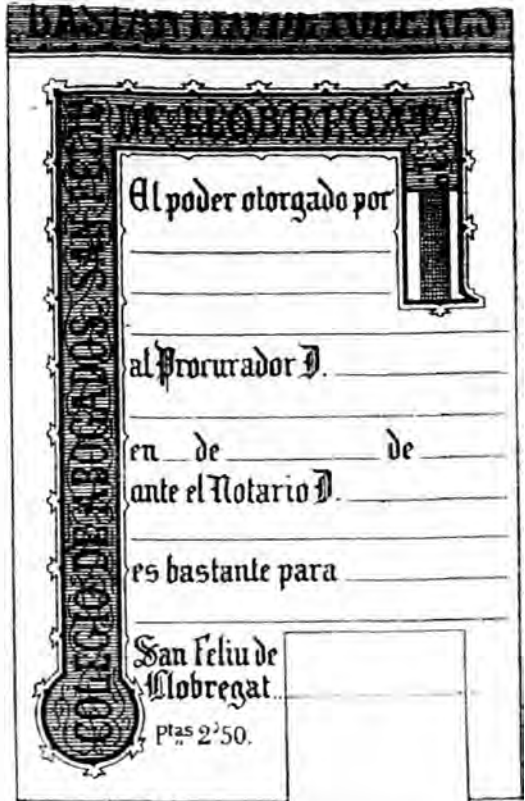 BASTANTEO DE PODERES
COLEGIO DE ABOGADOS SAN FELIU
DE LLOBREGAT
El poder otorgado por
al Procurador D.
en de de
ante el Notario D.
es bastante para
San Feliu de
Llobregat
Ptas 2'50.